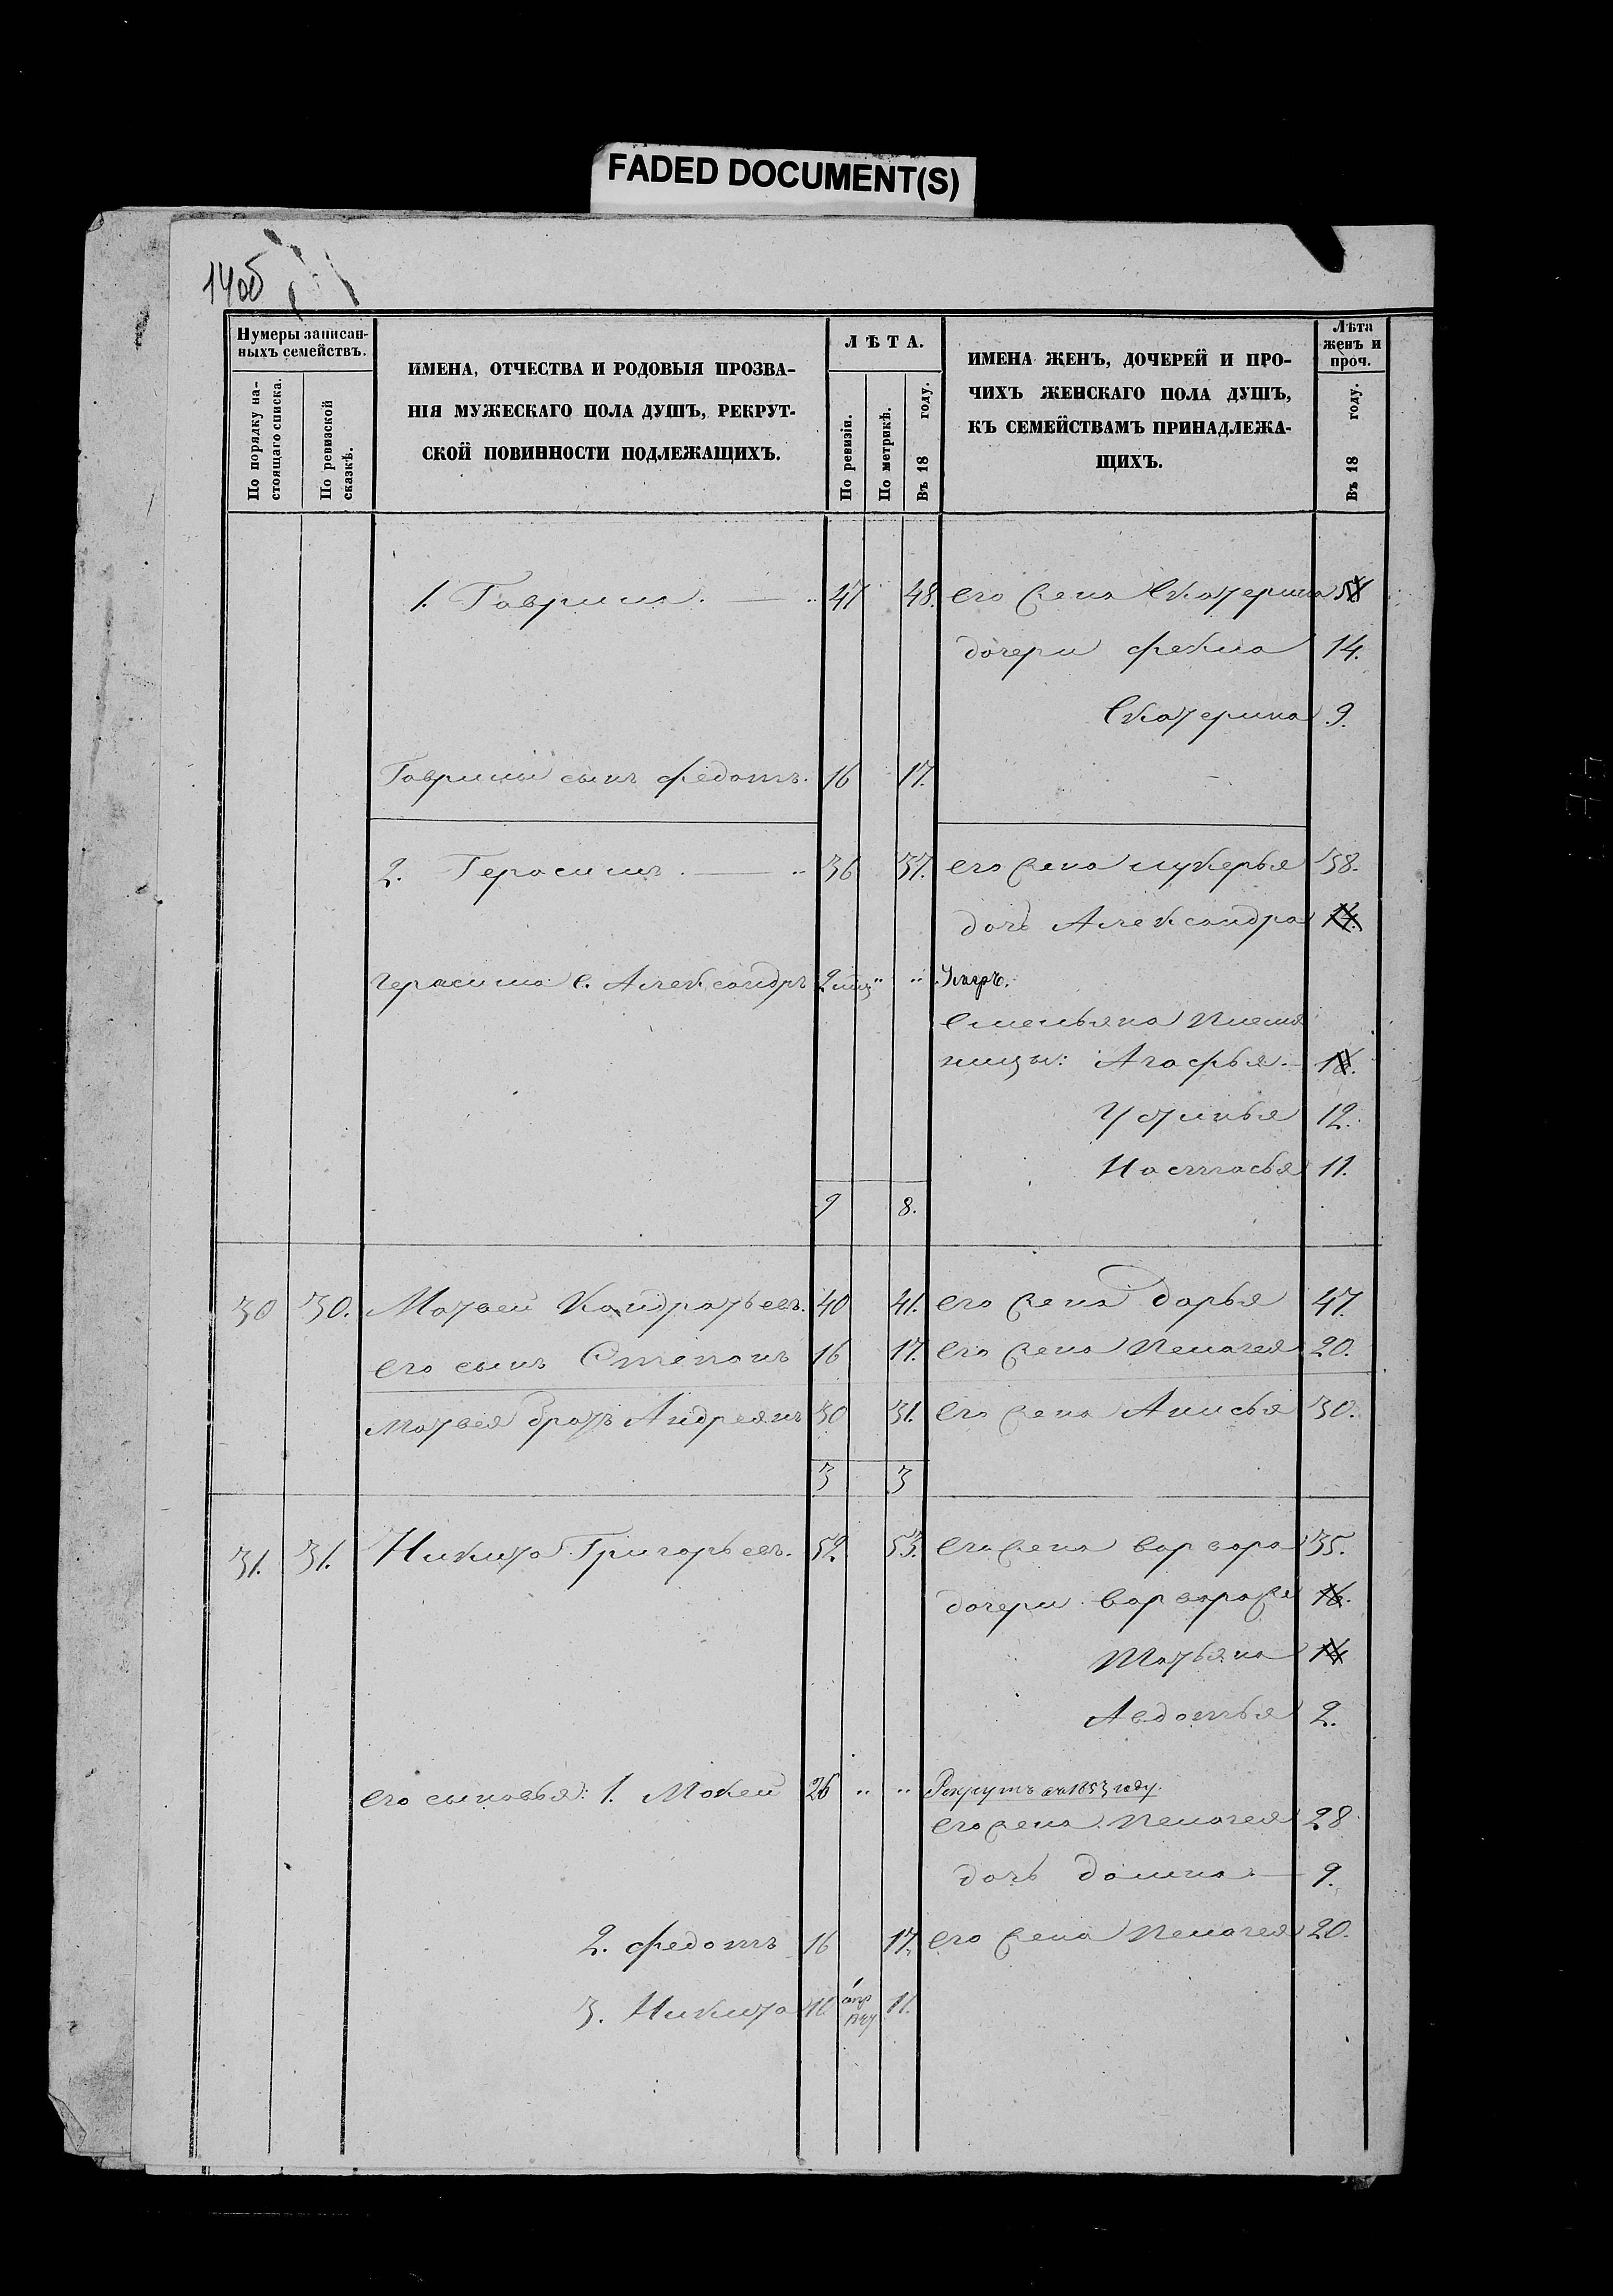 FADED DOCUMENT(S)
14об
Нумеры записан-
ныхъ семействъ.
По порядку на-
стоящаго списка.
По ревизской
сказкѣ.
ИМЕНА, ОТЧЕСТВА И РОДОВЫЯ ПРОЗВА-
НІЯ МУЖЕСКАГО ПОЛА ДУШЪ, РЕКРУТ-
СКОЙ ПОВИННОСТИ ПОДЛЕЖАЩИХЪ.
ЛѢТА.
По ревизіи.
По метрикѣ.
Въ 18 году.
ИМЕНА ЖЕНЪ, ДОЧЕРЕЙ И ПРО-
ЧИХЪ ЖЕНСКАГО ПОЛА ДУШЪ,
КЪ СЕМЕЙСТВАМЪ ПРИНАДЛЕЖА-
ЩИХЪ.
Лѣта
женъ и
проч.
Въ 18 году.
1. Гаврила. 47 48. его жена Екатерина
дочери Фекла 14.
Екатерина 9.
Гаврилы сынъ Федотъ. 16 17.
2. Герасимъ. 36 37. его жена лукерья 38.
дочь Александра
Герасима с. Александръ Умеръ.
Емельяна Племя
ницы: Агафья.
Устинья 12.
Настасья 11.
9 8.
30 30. Матвей Кондратьевъ. 40 41. его жена Дарья 47.
его сынъ Степанъ 16 17. его жена Пелагея 20.
Матвея братъ Андреянъ 30 31. его жена Анисья 30.
3 3
31. 31. Никита Григорьевъ. 52. 53. его жена варвара 35.
дочери варвара 16.
Татьяна 14
Авдотья 2.
его сыновья: 1. Мокей 26 " " Рекрутъ въ 1853 году.
его жена Пелагея 28
дочь домна 9.
2. Федотъ 16 17. его жена Пелагея 20.
3. Никита 10 11.